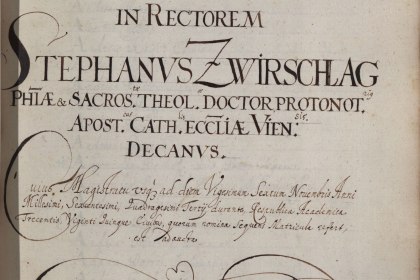 IN RECTOREM
STEPHANVS ZWIRSCHLAG
PHIÆ & SACROS.tæ THEOL.æ DOCTOR PROTONOT.
APOST.cus CATH.lis ECCLIÆ VIEN:sis.
DECANVS.
Cuius, Magistratu usq; ad diem Vigesimam Sextam Novembris Anni
Millesimi, Sexcentesimi, Quadragesimi Tertij durante, Respublica Academica
Trecentis, Viginti Quinque Civibus, quorum nomina Sequens Matricula refert,
est Adaucta.